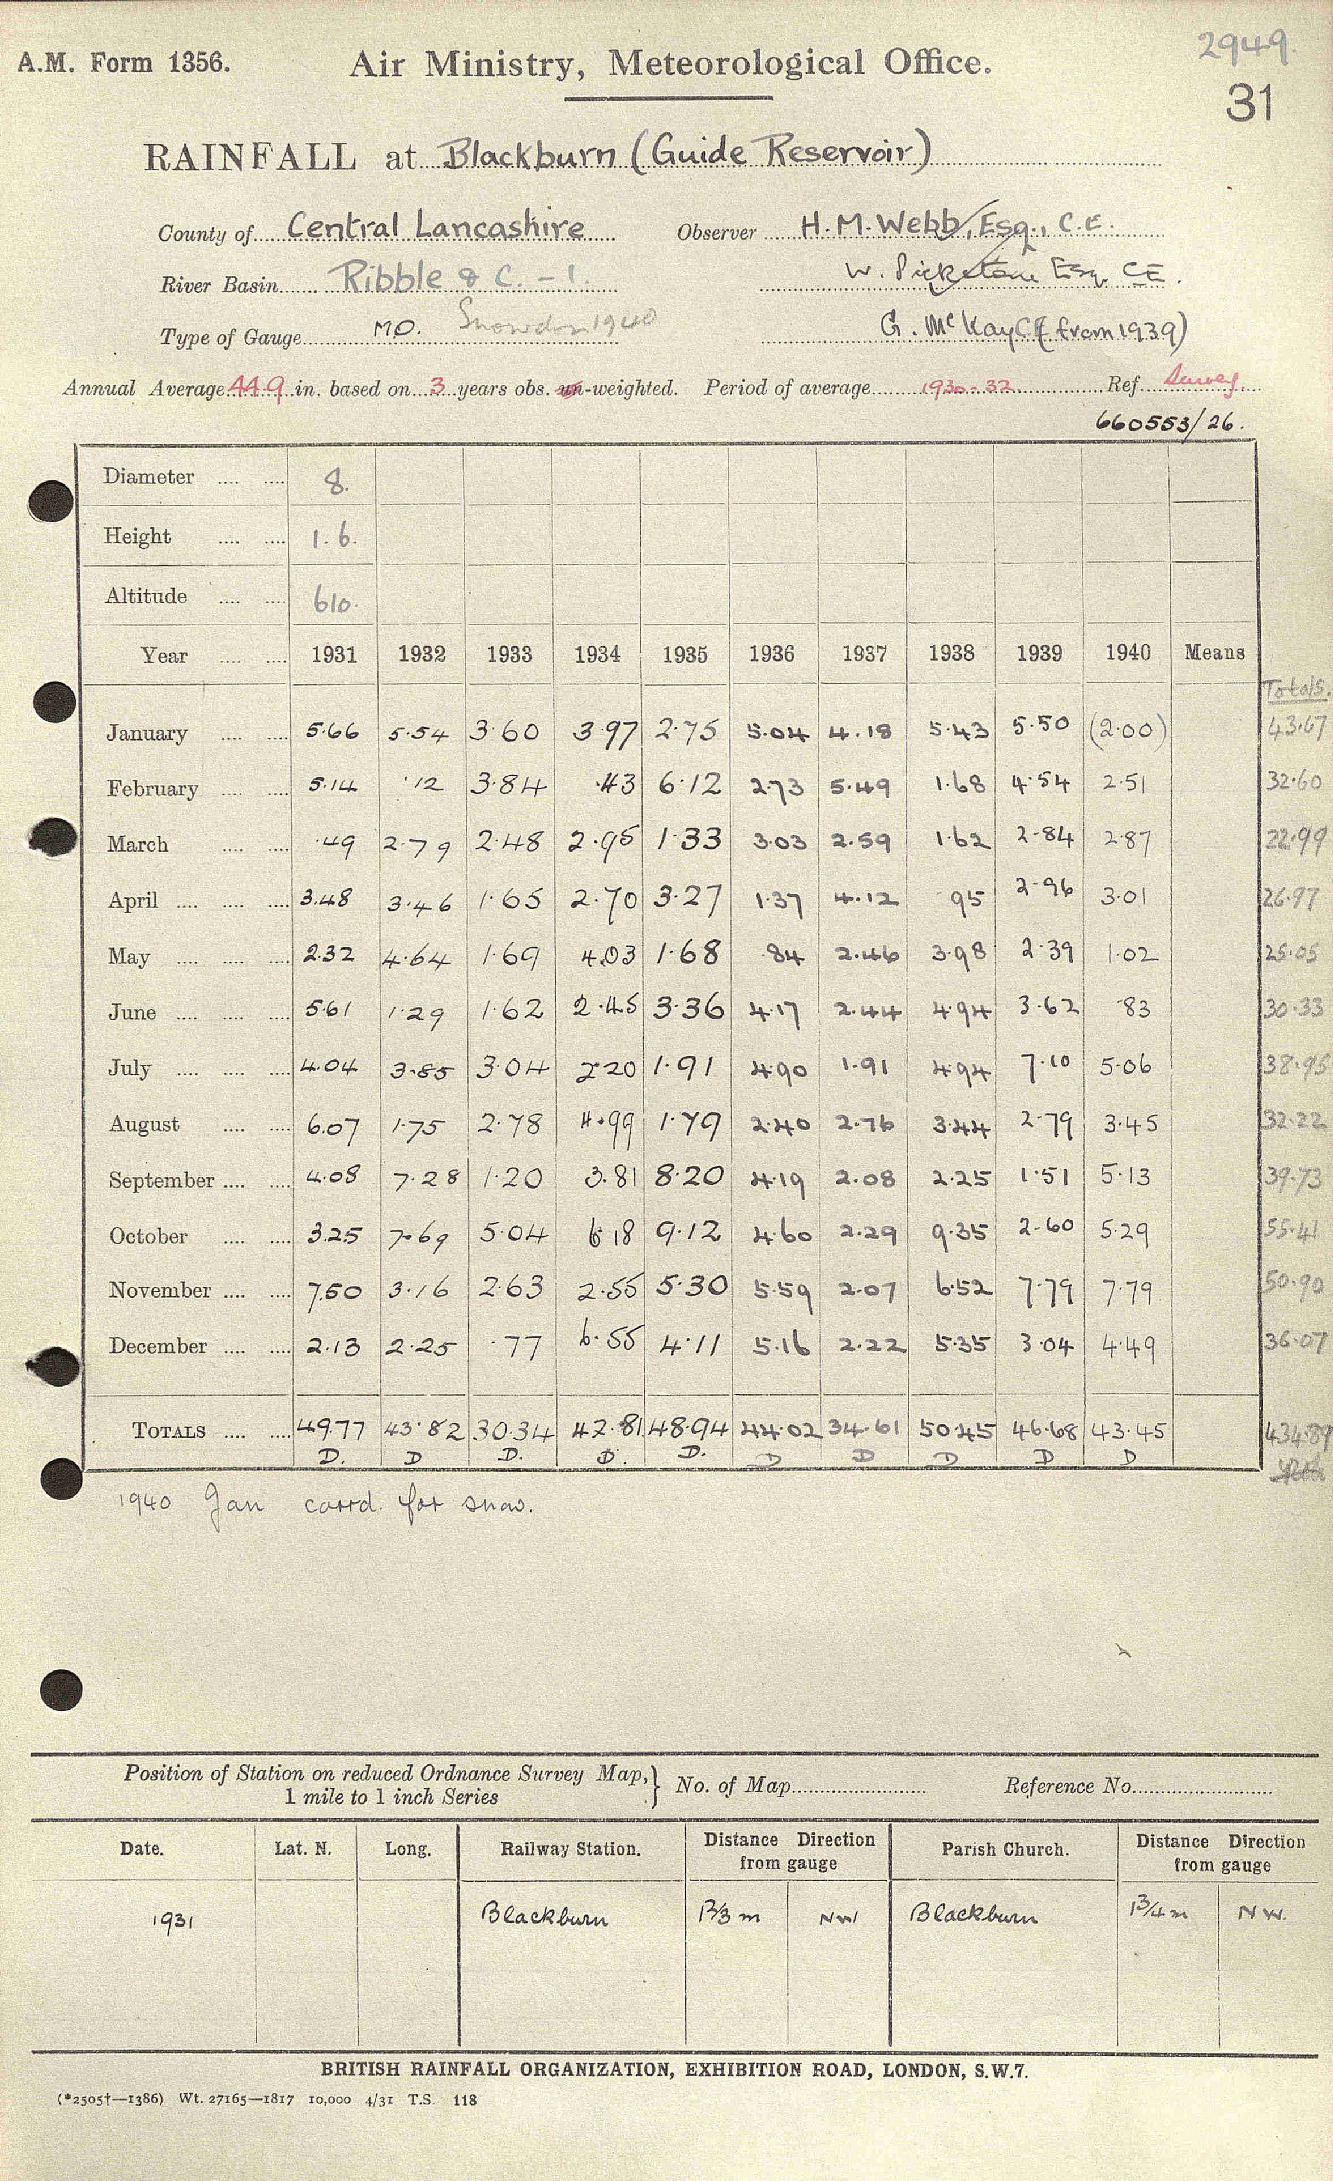 2949.
A.M. Form 1356. Air Ministry, Meteorological Office.
31
RAINFALL at Blackburn (Guide Reservoir)
County of Central Lancashire Observer H. M. Webb, Esq., C.E.
River Basin Ribble & C. - 1. W. Pickstone Esq. CE.
Type of Gauge MO. Snowdon 1940 G. McKay CE (from 1939)
Annual Average 44.9 in. based on 3 years obs. un-weighted. Period of average 1930-32 Ref. Survey
660553/26.
Diameter .... .... 8.
Height .... .... 1.6.
Altitude .... .... 610.
Year .... .... 1931 1932 1933 1934 1935 1936 1937 1938 1939 1940 Means
Totals.
January .... .... 5.66 5.54 3.60 3.97 2.75 5.04 4.18 5.43 5.50 (2.00) 43.67
February .... .... 5.14 .12 3.84 .43 6.12 2.73 5.49 1.68 4.54 2.51 32.60
March .... .... .49 2.79 2.48 2.95 1.33 3.03 2.59 1.62 2.84 2.87 22.99
April .... .... .... 3.48 3.46 1.65 2.70 3.27 1.37 4.12 .95 2.96 3.01 26.97
May .... .... .... 2.32 4.64 1.69 4.03 1.68 .84 2.46 3.98 2.39 1.02 25.05
June .... .... .... 5.61 1.29 1.62 2.45 3.36 4.17 2.44 4.94 3.62 .83 30.33
July .... .... .... 4.04 3.85 3.04 2.20 1.91 4.90 1.91 4.94 7.10 5.06 38.95
August .... .... 6.07 1.75 2.78 4.99 1.79 2.40 2.76 3.44 2.79 3.45 32.22
September .... .... 4.08 7.28 1.20 3.81 8.20 4.19 2.08 2.25 1.51 5.13 39.73
October .... .... 3.25 7.69 5.04 6.18 9.12 4.60 2.29 9.35 2.60 5.29 55.41
November .... .... 7.50 3.16 2.63 2.55 5.30 5.59 2.07 6.52 7.79 7.79 50.90
December .... .... 2.13 2.25 .77 6.55 4.11 5.16 2.22 5.35 3.04 4.49 36.07
TOTALS .... .... 49.77 43.82 30.34 42.81 48.94 44.02 34.61 50.45 46.68 43.45 434.89
D. D D. D. D. D D D D D
1940 Jan corrd. for snow.
Position of Station on reduced Ordnance Survey Map,} No. of Map Reference No.
1 mile to 1 inch Series
Date. Lat. N. Long. Railway Station. Distance Direction from gauge Parish Church. Distance Direction from gauge
1931 Blackburn 1 2/3 m NW Blackburn 1 3/4 m NW.
BRITISH RAINFALL ORGANIZATION, EXHIBITION ROAD, LONDON, S.W.7.
(*2505†—1386) Wt. 27165—1817 10,000 4/31 T.S. 118